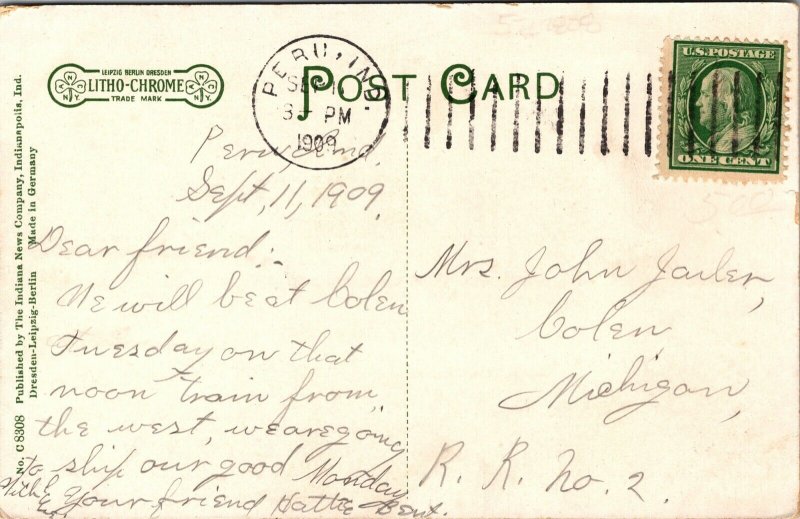 LEIPZIG BERLIN DRESDEN
LITHO-CHROME
TRADE MARK
POST CARD
PERU, IND.
SEP
3- PM
1909
U.S. POSTAGE
ONE CENT
No. C 8308 Published by The Indiana News Company, Indianapolis, Ind.
Dresden-Leipzig-Berlin Made in Germany
Peru Ind.
Sept, 11, 1909.
Dear friend:
We will be at Colen
Tuesday on that
noon train from
the west, we are going
to ship our good Monday
Your friend Hattie Bent.
Mrs. John Jarler,
Colen,
Michigan,
R. R. No. 2.